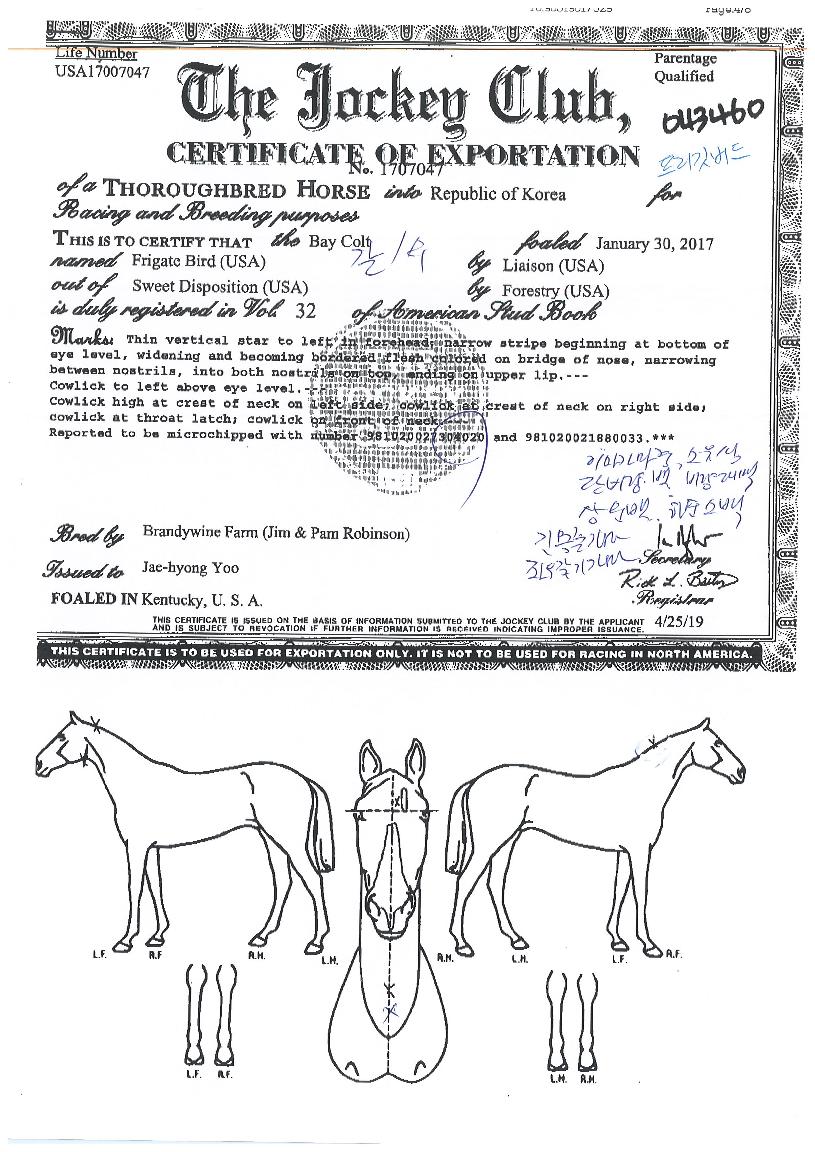 Life Number
USA17007047
Parentage
Qualified
The Jockey Club,
043460
CERTIFICATE OF EXPORTATION
프리깃버드
No. 1707047
of a THOROUGHBRED HORSE into Republic of Korea for
Racing and Breeding purposes
THIS IS TO CERTIFY THAT the Bay Colt foaled January 30, 2017
named Frigate Bird (USA) by Liaison (USA)
out of Sweet Disposition (USA) by Forestry (USA)
is duly registered in Vol. 32 of American Stud Book
Marks: Thin vertical star to left in forehead; narrow stripe beginning at bottom of
eye level, widening and becoming bordered flesh colored on bridge of nose, narrowing
between nostrils, into both nostrils on top, ending on upper lip.---
Cowlick to left above eye level.---
Cowlick high at crest of neck on left side; cowlick at crest of neck on right side;
cowlick at throat latch; cowlick on front of neck.---
Reported to be microchipped with number 981020027304020 and 981020021880033.***
Bred by Brandywine Farm (Jim & Pam Robinson)
Secretary
Issued to Jae-hyong Yoo
Registrar
FOALED IN Kentucky, U. S. A.
THIS CERTIFICATE IS ISSUED ON THE BASIS OF INFORMATION SUBMITTED TO THE JOCKEY CLUB BY THE APPLICANT
AND IS SUBJECT TO REVOCATION IF FURTHER INFORMATION IS RECEIVED INDICATING IMPROPER ISSUANCE. 4/25/19
THIS CERTIFICATE IS TO BE USED FOR EXPORTATION ONLY. IT IS NOT TO BE USED FOR RACING IN NORTH AMERICA.
L.F. R.F. R.H. L.H. R.H. L.H. L.F. R.F.
L.F. R.F. L.H. R.H.